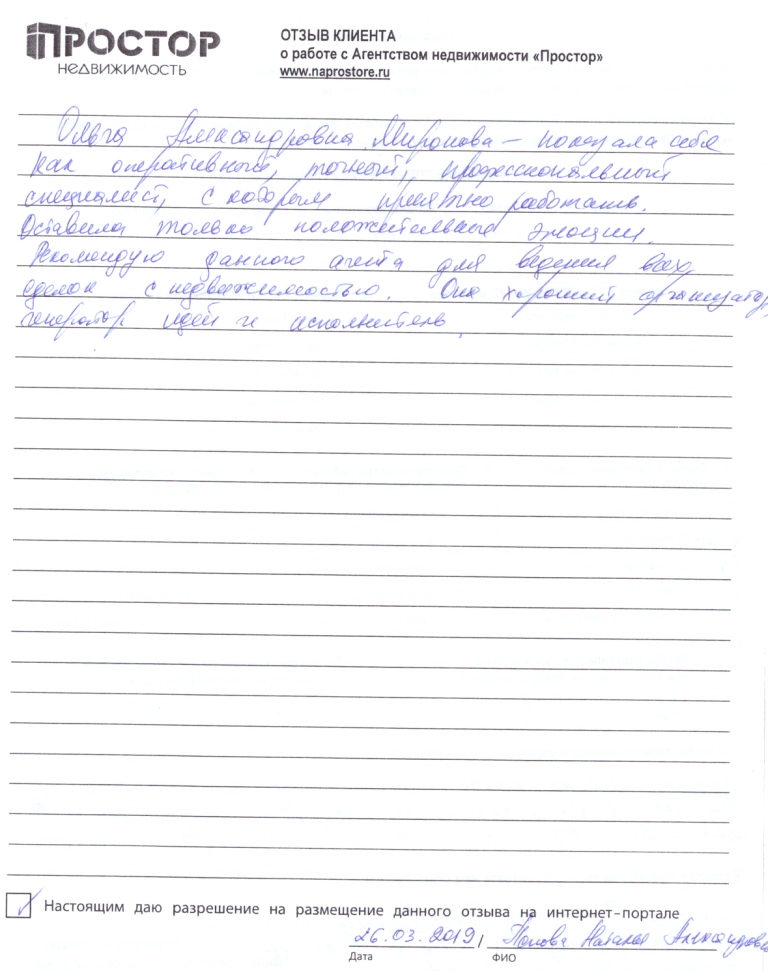 ПРОСТОР
НЕДВИЖИМОСТЬ
ОТЗЫВ КЛИЕНТА
о работе с Агентством недвижимости «Простор»
www.naprostore.ru
Ольга Александровна Миронова – показала себя
как оперативный, точный, профессиональный
специалист, с которым приятно работать.
Оставила только положительные эмоции.
Рекомендую данного агента для ведения всех
сделок с недвижимостью. Она хороший организатор,
генератор идей и исполнитель.
Настоящим даю разрешение на размещение данного отзыва на интернет-портале
26.03.2019 / Попова Наталья Александровна
Дата ФИО